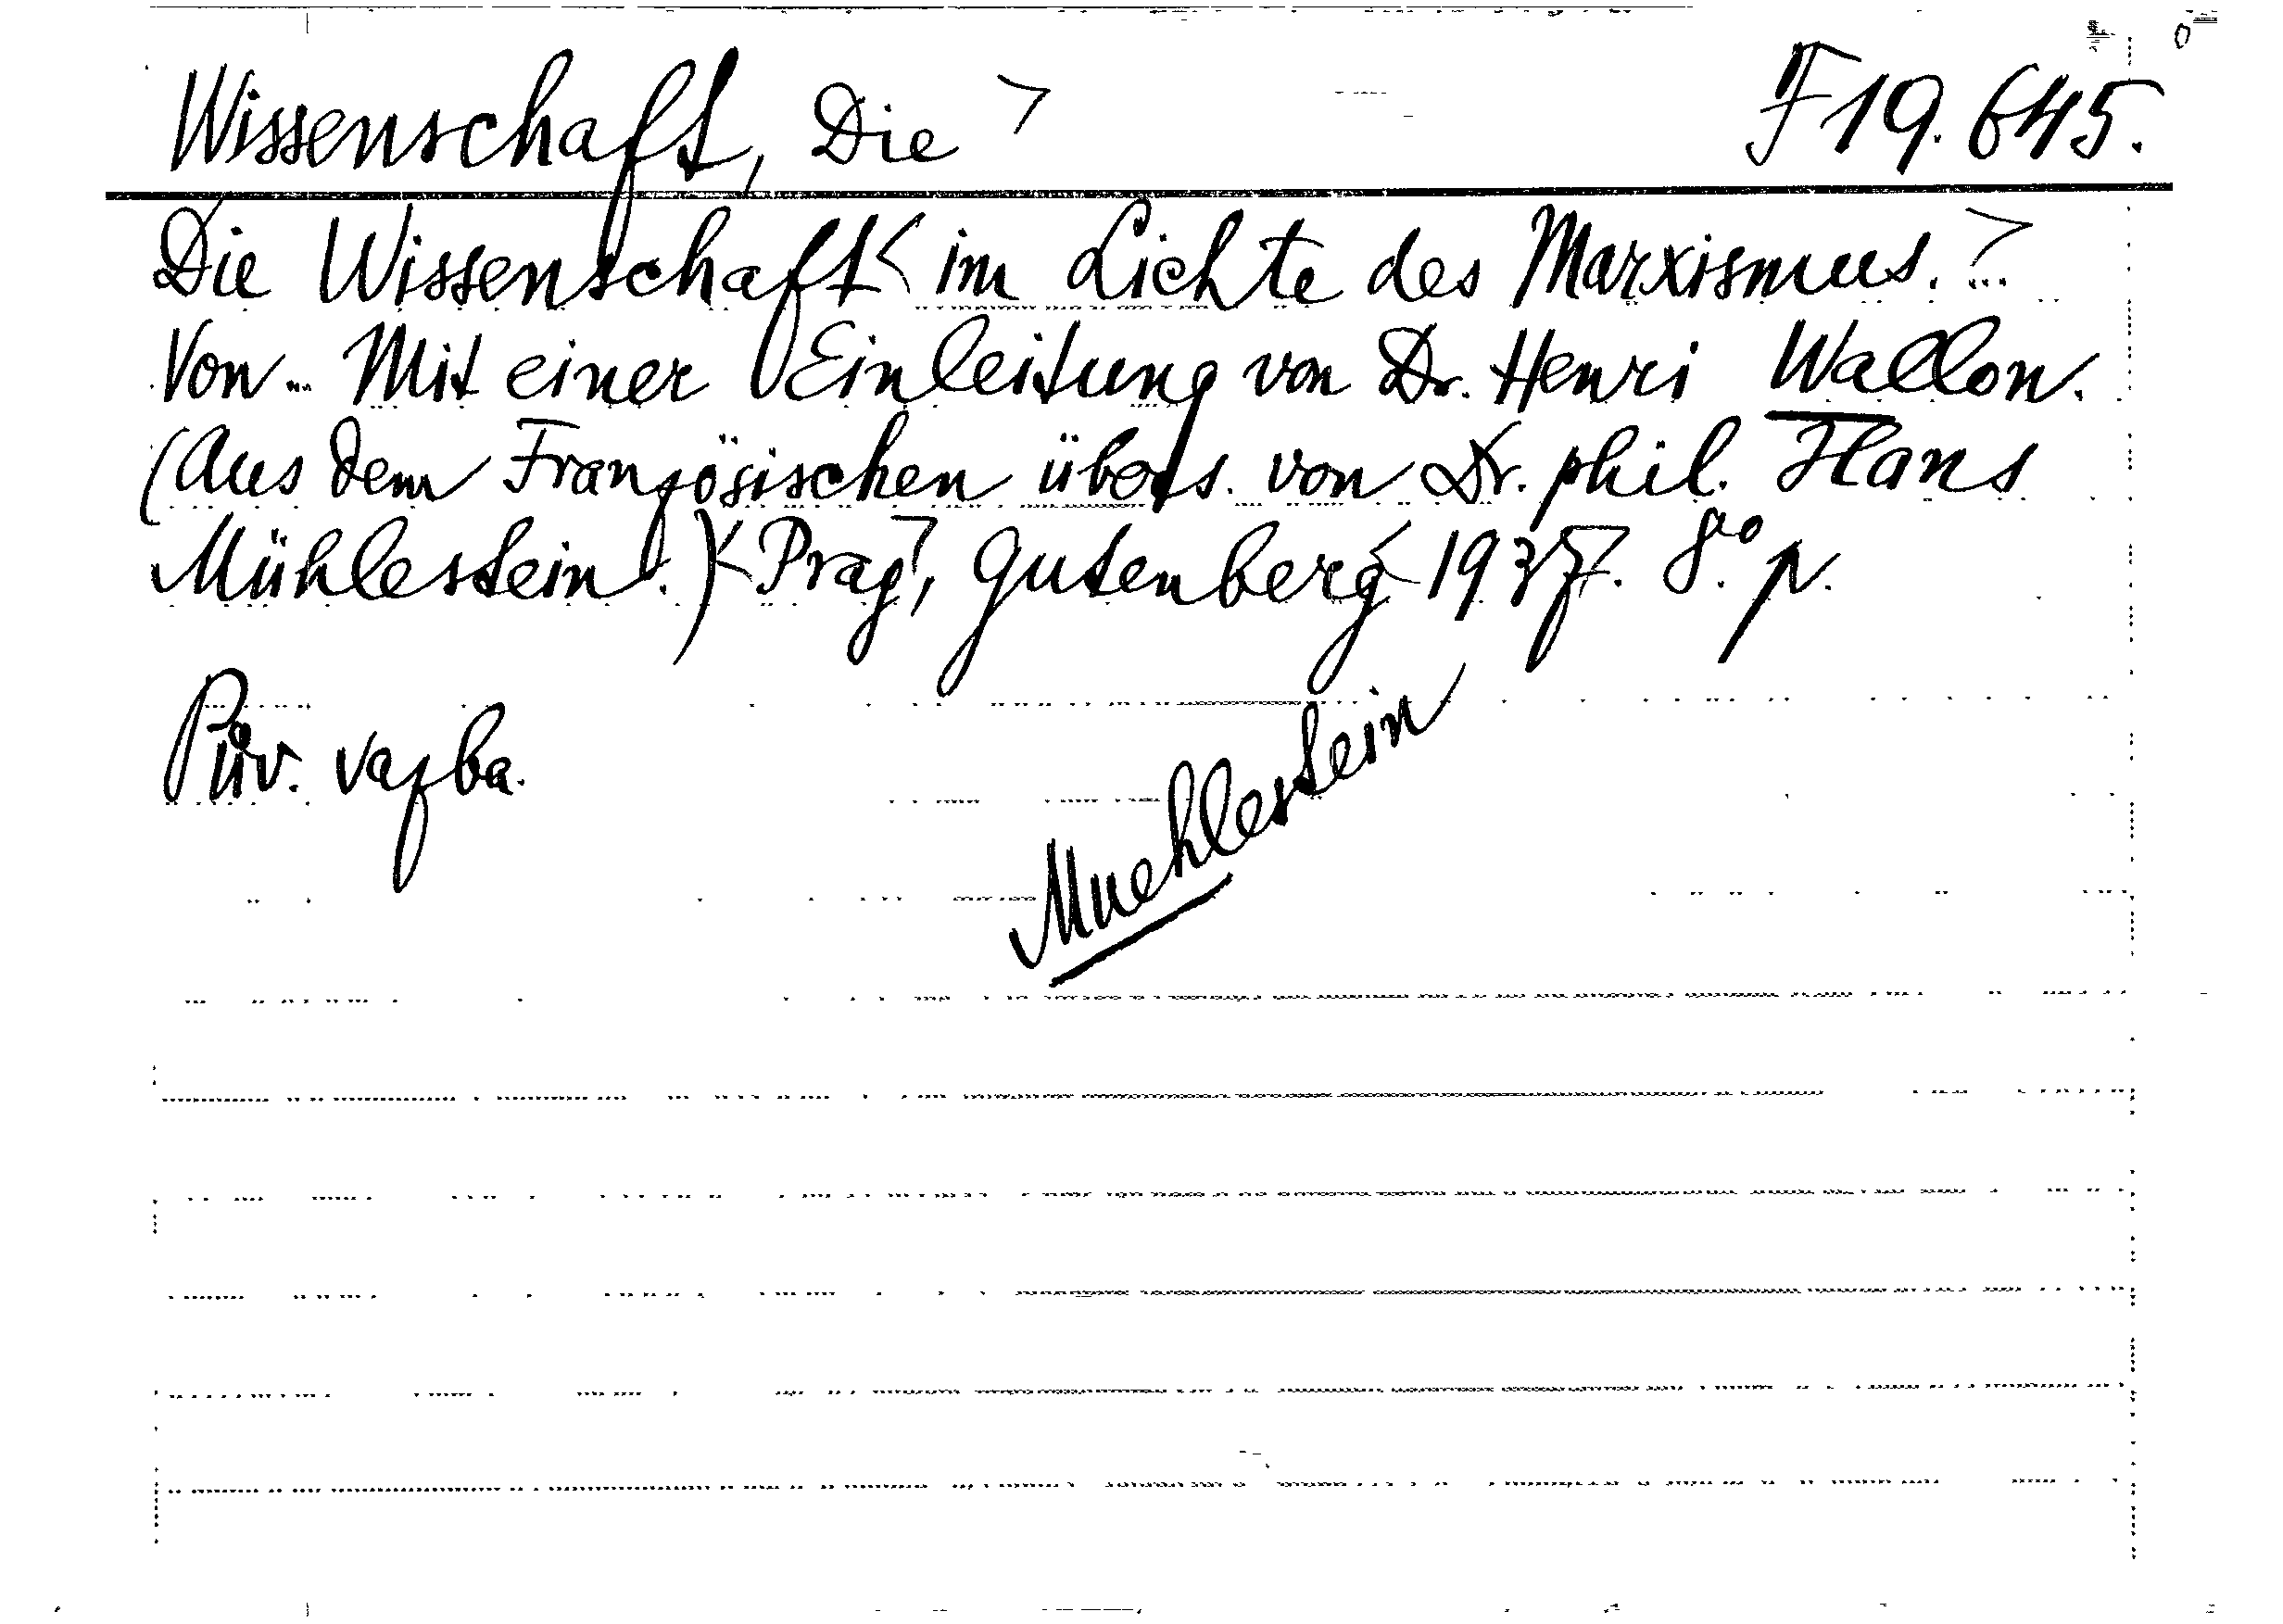 Wissenschaft, Die > F 19.645.
Die Wissenschaft < im Lichte des Marxismus. > ...
Von ... Mit einer Einleitung von Dr. Henri Wallon.
(Aus dem Französischen übers. von Dr. phil. Hans
Mühlestein.) < Prag, Gutenberg 1937. 8° p.
Pův. vazba.
Muehlestein